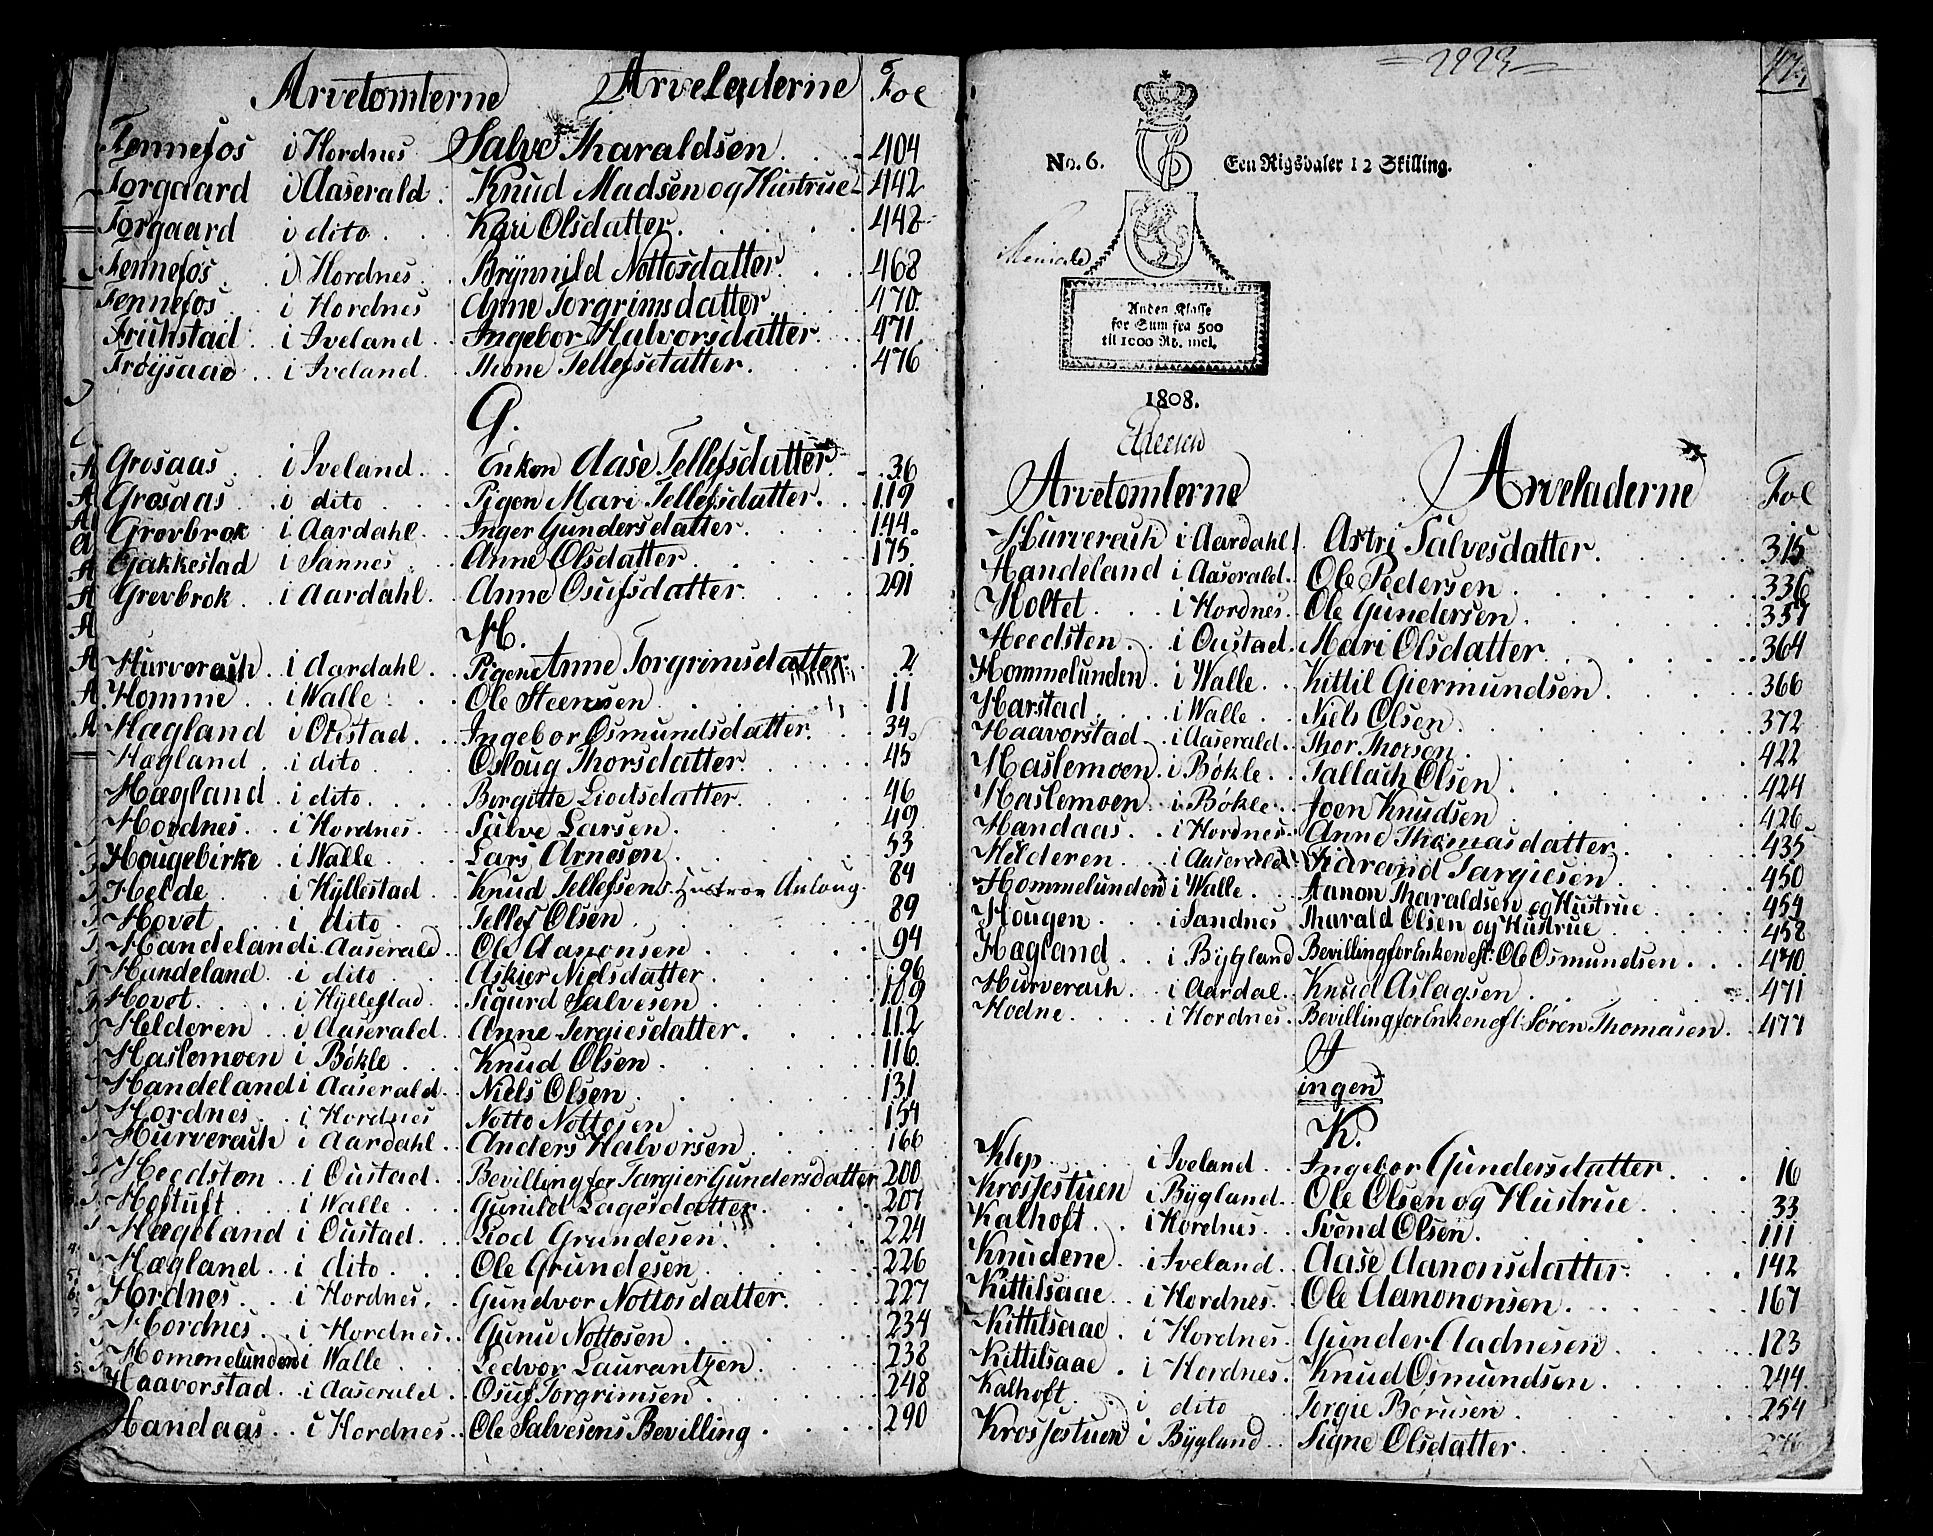 Arvetomterne Arveladerne Fol
Fennefos i Hordnes Salve Tharaldsen 404
Forgaard i Aaserald Knud Madsen og Hustrue 442
Forgaard i dito Kari Olsdatter 442
Fennefos i Hordnes Brynnild Nottosdatter 468
Fennefos i Hordnes Anne Torgrimsdatter 470
Friihstad i Iveland Ingebor Halvorsdatter 471
Frøysaae i Iveland Thone Tellefsdatter 476
G.
Grosaas i Iveland Enken Aase Tellefsdatter 36
Grosaas i dito Pigen Mari Tellefsdatter 119
Grovbrok i Aardahl Inger Gundersdatter 144
Gakkestad i Sannes Anne Olsdatter 175
Grevbrok i Aardahl Anne Osufsdatter 291
H.
Hurverach i Aardahl Pigen Anne Torgrimsdatter 2
Homme i Walle Ole Steensen 11
Hagland i Oustad Ingebor Osmundsdatter 34
Hagland i dito Osloug Thorsdatter 45
Hægland i dito Bergitte Liodsdatter 46
Hordnes i Hordnes Salve Larsen 49
Hougebirke i Walle Lars Arnesen 53
Helde i Hyllestad Knud Tellefsens Hustroe Anloug 84
Hovet i dito Tellef Olsen 89
Handeland i Aaserald Ole Aanonsen 94
Handeland i dito Askier Nielsdatter 96
Hovet i Hyllestad Sigurd Salvesen 109
Helderen i Aaserald Anne Tergiesdatter 112
Haslemoen i Bøkle Knud Olsen 116
Handeland i Aaserald Niels Olsen 131
Hordnes i Hordnes Notto Nottosen 154
Hurverach i Aardahl Anders Halvorsen 166
Heedsten i Oustad Bevilling for Targier Gundersdatter 200
Hoftuft i Walle Gunild Lagesdatter 207
Hægeland i Oustad Liod Grundesen 224
Hægland i dito Ole Grundesen 226
Hordnes i Hordnes Gundvor Nottosdatter 227
Hordnes i Hordnes Gunu Nottosen 234
Hommelunden i Walle Ledvor Laurantzen 238
Haavorstad i Aaserald Osuf Torgrimsen 248
Handaas i Hordnes Ole Salvesens Bevilling 290
No. 6. Een Rigsdaler 12 Skilling.
Anden Klasse
for Sum fra 500
til 1000 Rd. incl.
1808.
Arvetomterne Arveladerne Fol
Hurverach i Aardahl Astri Salvesdatter 315
Handeland i Aaserald Ole Pedersen 336
Holtet i Hordnes Ole Gundersen 357
Heedsten i Oustad Mari Olsdatter 364
Hommelunden i Walle Kittil Giermundsen 366
Harstad i Walle Niels Olsen 372
Haavorstad i Aaserald Thor Thorsen 422
Haslemoen i Bøkle Tallach Olsen 424
Haslemoen i Bøkle Joen Knudsen 426
Handaas i Hordnes Anne Thomasdatter 435
Helderen i Aaserald Sidrand Targiesen 450
Hommelunden i Walle Aanon Tharaldsen og Hustrue 454
Hougen i Sandnes Tharald Olsen og Hustrue 458
Hagland i Bygland Bevilling for Enken eft: Ole Osmundsen 470
Hurverach i Aardal Knud Aslagsen 471
Hodne i Hordnes Bevilling for Enken eft: Søren Thomasen 477
J
ingen
K.
Klep i Iveland Ingebor Gundersdatter 16
Krosjestuen i Bygland Ole Olsen og Hustrue 33
Kalhoft i Hordnes Svend Olsen 111
Knudene i Iveland Aase Aanonsdatter 142
Kittilsaae i Hordnes Ole Aanononsen 167
Kittilsaae i Hordnes Gunder Aadnesen 183
Kittilsaae i Hordnes Knud Osmundsen 244
Kalhoft i dito Torgie Børusen 254
Krosjestuen i Bygland Signe Olsdatter